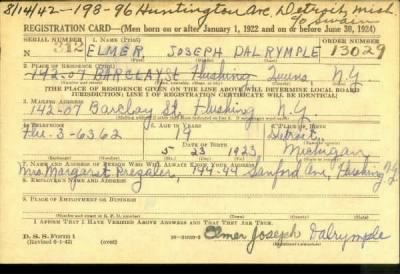 8/14/42-198-96 Huntington Ave, Detroit, Mich.
c/o Swain
REGISTRATION CARD—(Men born on or after January 1, 1922 and on or before June 30, 1924)
SERIAL NUMBER 1. NAME (Print) ORDER NUMBER
312 ELMER JOSEPH DALRYMPLE 13029
(First) (Middle) (Last)
2. PLACE OF RESIDENCE (Print)
142-07 BARCLAY St Flushing Queens, N.Y.
(Number and street) (Town, township, village, or city) (County) (State)
[THE PLACE OF RESIDENCE GIVEN ON THE LINE ABOVE WILL DETERMINE LOCAL BOARD
JURISDICTION; LINE 2 OF REGISTRATION CERTIFICATE WILL BE IDENTICAL]
3. MAILING ADDRESS
142-07 Barclay St. Flushing N.Y.
4. TELEPHONE 5. AGE IN YEARS 6. PLACE OF BIRTH
Flu-3-6362 19 Detroit,
DATE OF BIRTH
5 23 1923 Michigan
(Mo.) (Day) (Yr.)
7. NAME AND ADDRESS OF PERSON WHO WILL ALWAYS KNOW YOUR ADDRESS
Mrs. Margaret 144-44 Sanford Ave, Flushing N.Y.
8. EMPLOYER'S NAME AND ADDRESS
9. PLACE OF EMPLOYMENT OR BUSINESS
(Number and street or R. F. D. number) (Town) (County) (State)
I AFFIRM THAT I HAVE VERIFIED ABOVE ANSWERS AND THAT THEY ARE TRUE.
D. S. S. Form 1
(Revised 6-1-42) (over)
Elmer Joseph Dalrymple
(Registrant's signature)